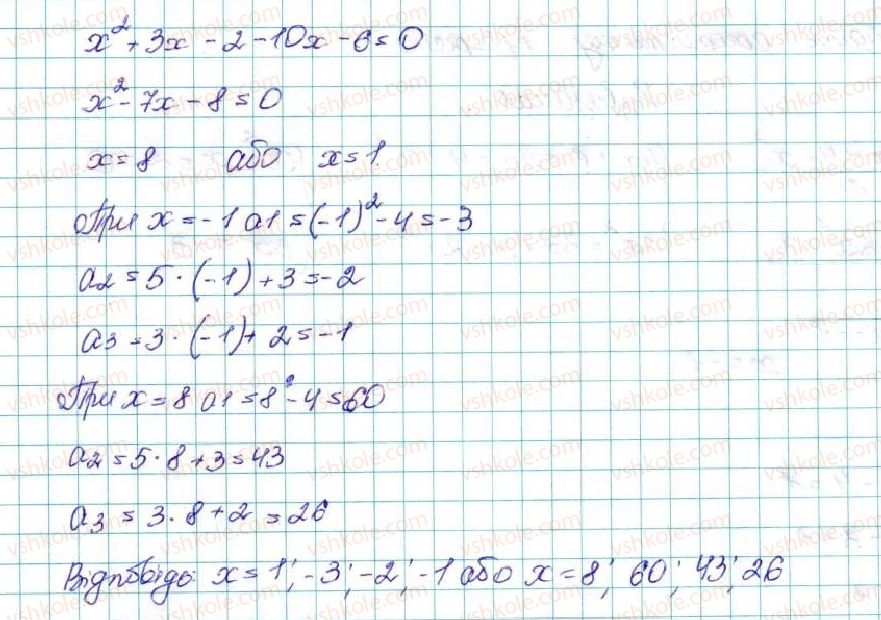 x² + 3x - 2 - 10x - 6 = 0
x² - 7x - 8 = 0
x = 8 або x = 1
При x = -1 a1 = (-1)² - 4 = -3
a2 = 5 · (-1) + 3 = -2
a3 = 3 · (-1) + 2 = -1
При x = 8 a1 = 8² - 4 = 60
a2 = 5 · 8 + 3 = 43
a3 = 3 · 8 + 2 = 26
Відповідь: x = 1; -3; -2; -1 або x = 8; 60; 43; 26
vshkole.com